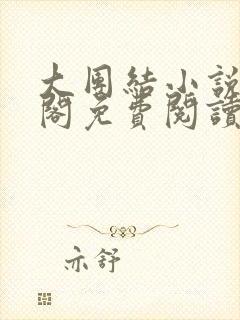 大團結小說
閣免費閱讀
亦舒